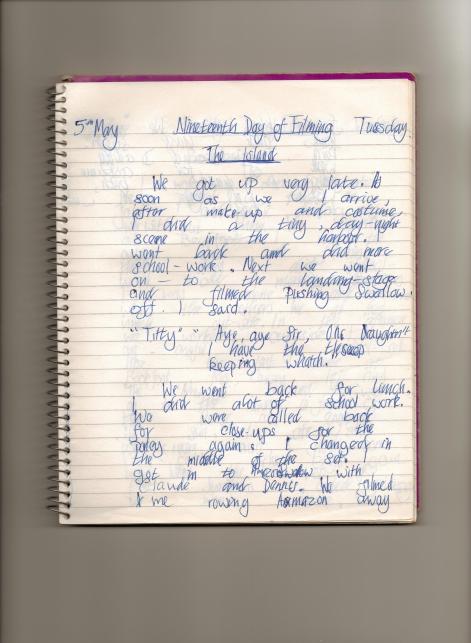 5th May Nineteenth Day of Filming Tuesday.
The Island
We got up very late. As
soon as we arrive,
after make-up and costume,
I did a tiny, day-night
scene in the harbour. I
went back and did more
school-work. Next we went
on-to the landing-stage
and filmed Pushing Swallow
off. I said.
"Titty" " Aye, aye Sir, One Daughn't
I have the
keeping whatch.
We went back for lunch.
I did alot of school work.
We were called back
for close-ups for the
again. I changed in
the middle of the set. I
got in to with
Claude and Dennis. We filmed
& me rowing Aamazon away